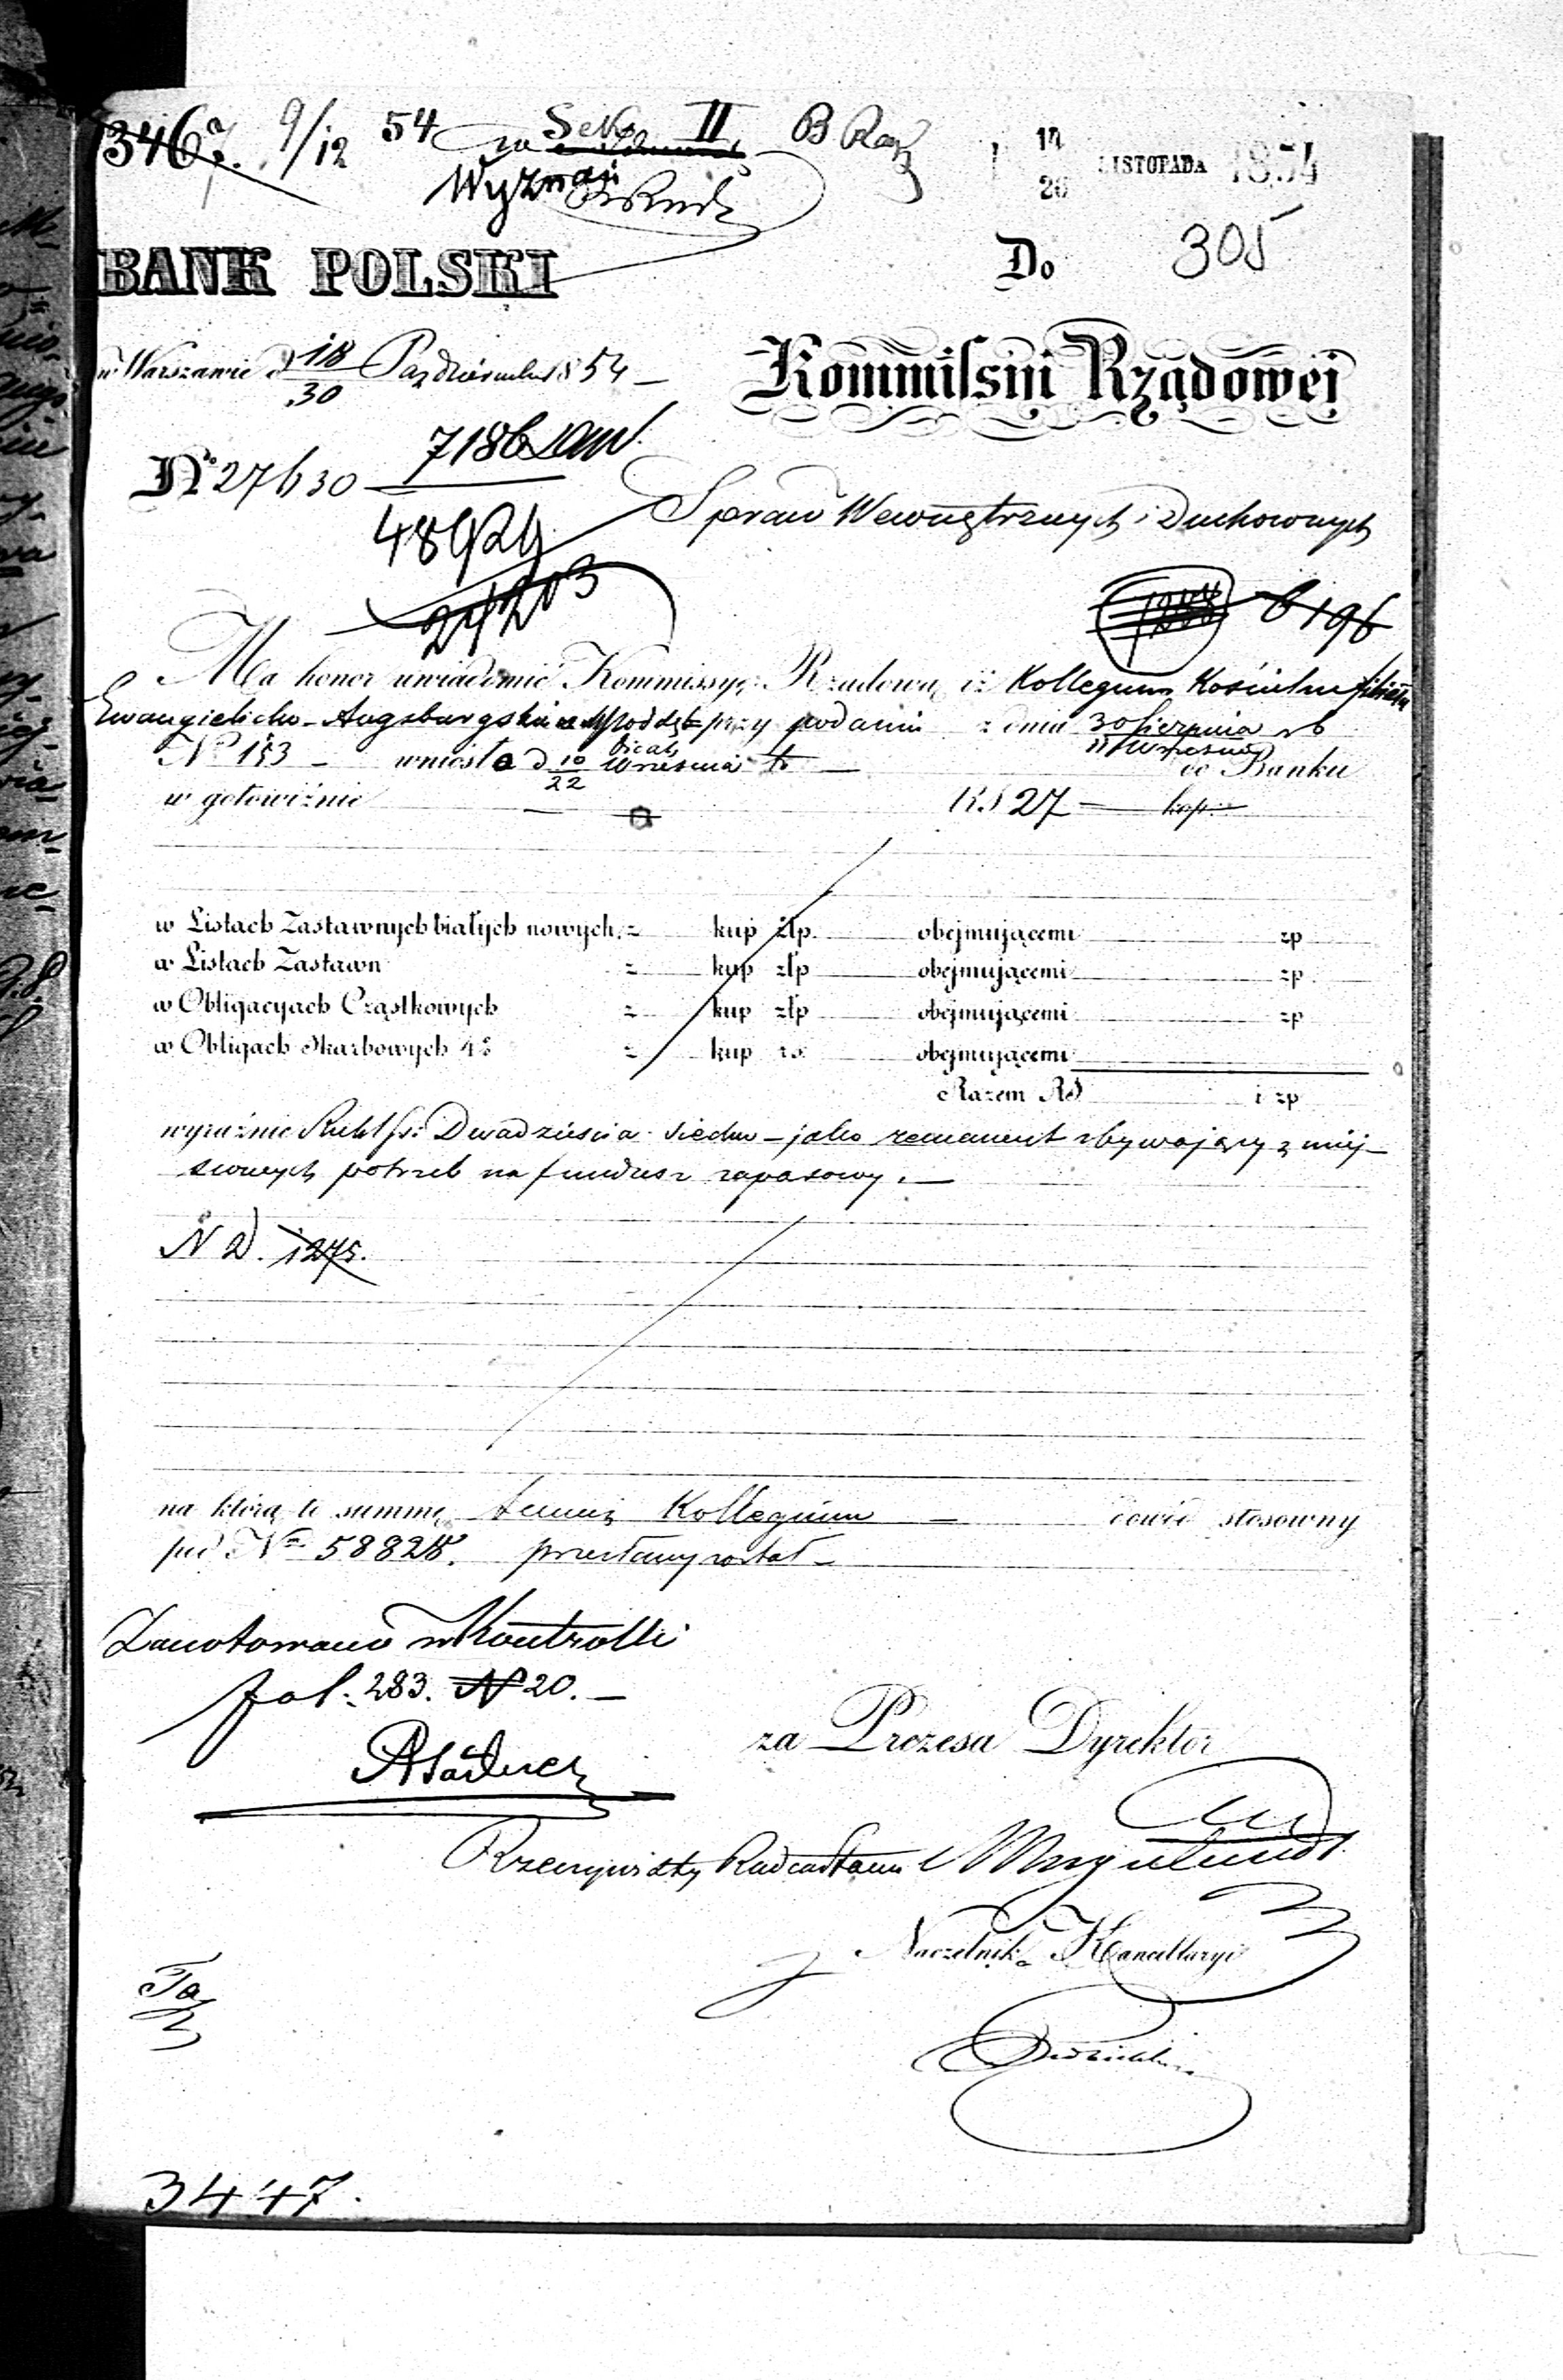 3467. 9/12 54 za Sek II B Raz 14/26 LISTOPADA 1854
Wyznań
BANK POLSKI
Do 305
w Warszawie d 18/30 Października 1854 —
Kommissyi Rządowej
No 27630 — 7186
48424
Spraw Wewnętrznych i Duchownych
24203
1288 6196
Ma honor uwiadomić Kommissyę Rządową iż Kollegium Kościelne filialn
Ewangielicko-Augsburgskie przy podaniu z dnia 30 Sierpnia / 11 Września r b
No 153 — wniosło d 10/22 Września tr — do Banku
w gotowiźnie — RS 27 — kop: —
w Listach Zastawnych białych nowych z kup złp. obejmującemi zp
w Listach Zastawn z kup złp obejmującemi zp
w Obligacyach Cząstkowych z kup złp obejmującemi zp
w Obligach Skarbowych 4% z kup rs. obejmującemi
Razem RS i zp
wyraźnie Rubli sr: Dwadzieścia siedm — jako remanent zbywający z miej-
scowych potrzeb na fundusz zapasowy. —
N D. 1275.
na którą to summę temuż Kollegium — dowód stosowny
pod No 58828. przesłany został —
Zanotowano w Kontrolli
fol: 283. N 20. —
za Prezesa Dyrektor
Rzeczywisty Radca Stanu
Naczelnik Kancellaryi
3447.